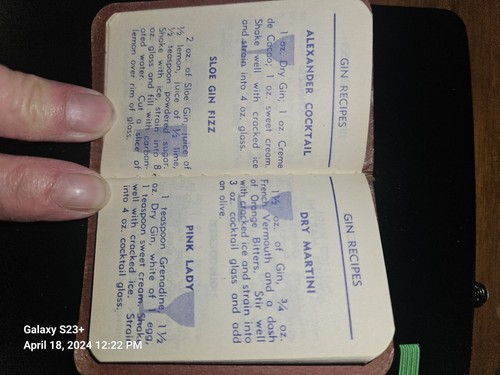 GIN RECIPES
ALEXANDER COCKTAIL
1 oz. Dry Gin; 1 oz. Creme
de Cocao; 1 oz. sweet cream.
Shake well with cracked ice
and strain into 4 oz. glass.
SLOE GIN FIZZ
2 oz. of Sloe Gin, juice of
½ lemon, juice of ½ lime,
½ teaspoon powdered sugar.
Shake with ice, strain into 8
oz. glass and fill with carbon-
ated water. Cut a slice of
lemon over rim of glass.
GIN RECIPES
DRY MARTINI
1½ oz. of Gin, ¾ oz.
French Vermouth and a dash
of Orange Bitters. Stir well
with cracked ice and strain into
3 oz. cocktail glass and add
an olive.
PINK LADY
1 teaspoon Grenadine, 1½
oz. Dry Gin, white of 1 egg,
1 teaspoon sweet cream. Shake
well with cracked ice. Strain
into 4 oz. cocktail glass.
Galaxy S23+
April 18, 2024 12:22 PM